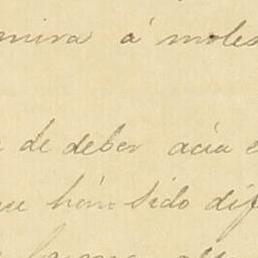 mira á moles
de deber acia e
ue hán sido dif